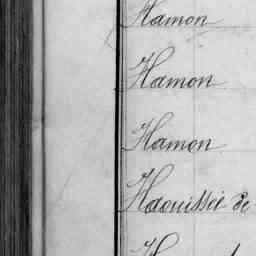 Hamon
Hamon
Hamon
Haouissée de